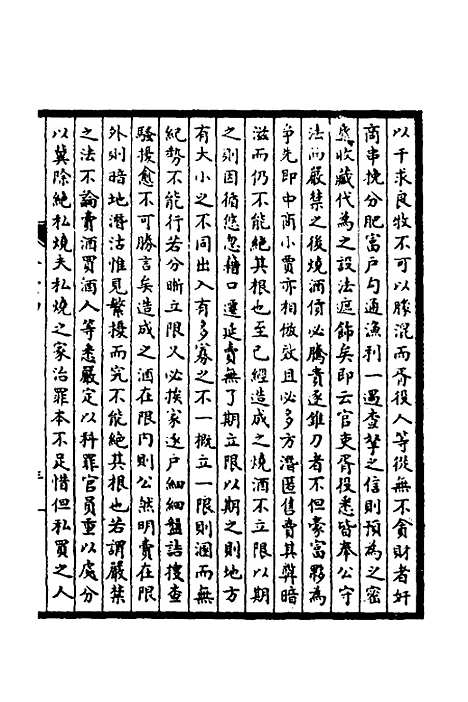 以干求良牧不可以朦混而胥役人等從無不貪財者奸
商串挽分肥富戶勾通漁利一遇查拏之信則預為之密
為收藏代為之設法庇飾矣即云官吏胥役悉皆奉公守
法而嚴禁之後燒酒價必騰貴逐錐刀者不但豪富夥為
爭先即中商小賈亦相倣效且必多方潛匿售賣其弊暗
滋而仍不能絕其根也至已經造成之燒酒不立限以期
之則因循悠忽藉口遷延賣無了期立限以期之則地方
有大小之不同出入有多寡之不一概立一限則涸而無
紀勢不能行若分晰立限又必挨家逐戶細細盤詰搜查
騷擾愈不可勝言矣造成之酒在限內則公然明賣在限
外則暗地潛沽惟見繁擾而究不能絕其根也若謂嚴禁
之法不論賣酒買酒人等悉嚴定以科罪官員重以處分
以冀除絕私燒夫私燒之家治罪本不足惜但私買之人